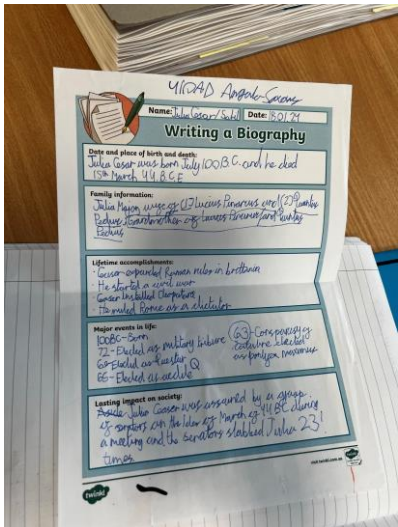 Anglo-Saxons
Name: Julia Cesar/ Date: 18.01.24
Writing a Biography
Date and place of birth and death:
Julia Cesar was born July 100 B.C. and he died
15th March 44 B.C.E
Family information:
Julia Major, wife of (1) Lucius Pinarius and (2) Quintus
Pedius, Grandmother of Lucius Pinarius and Quintus
Pedius
Lifetime accomplishments:
· Ceaser expanded Roman rules in
· He started a civil war
· Ceaser Installed Cleopatra
· He ruled Rome as a dictator
Major events in life:
100BC - Born
72 - Elected as military tribune
69 Elected as Q
65 - Elected as aedile
63 - Conspiracy of
cataline Elected
as
Lasting impact on society:
Julia Ceaser was by a group
of senators on the Ides of March of 44 BC during
a meeting and the senators stabbed Julia 23!
times
visit twinkl.com
twinkl